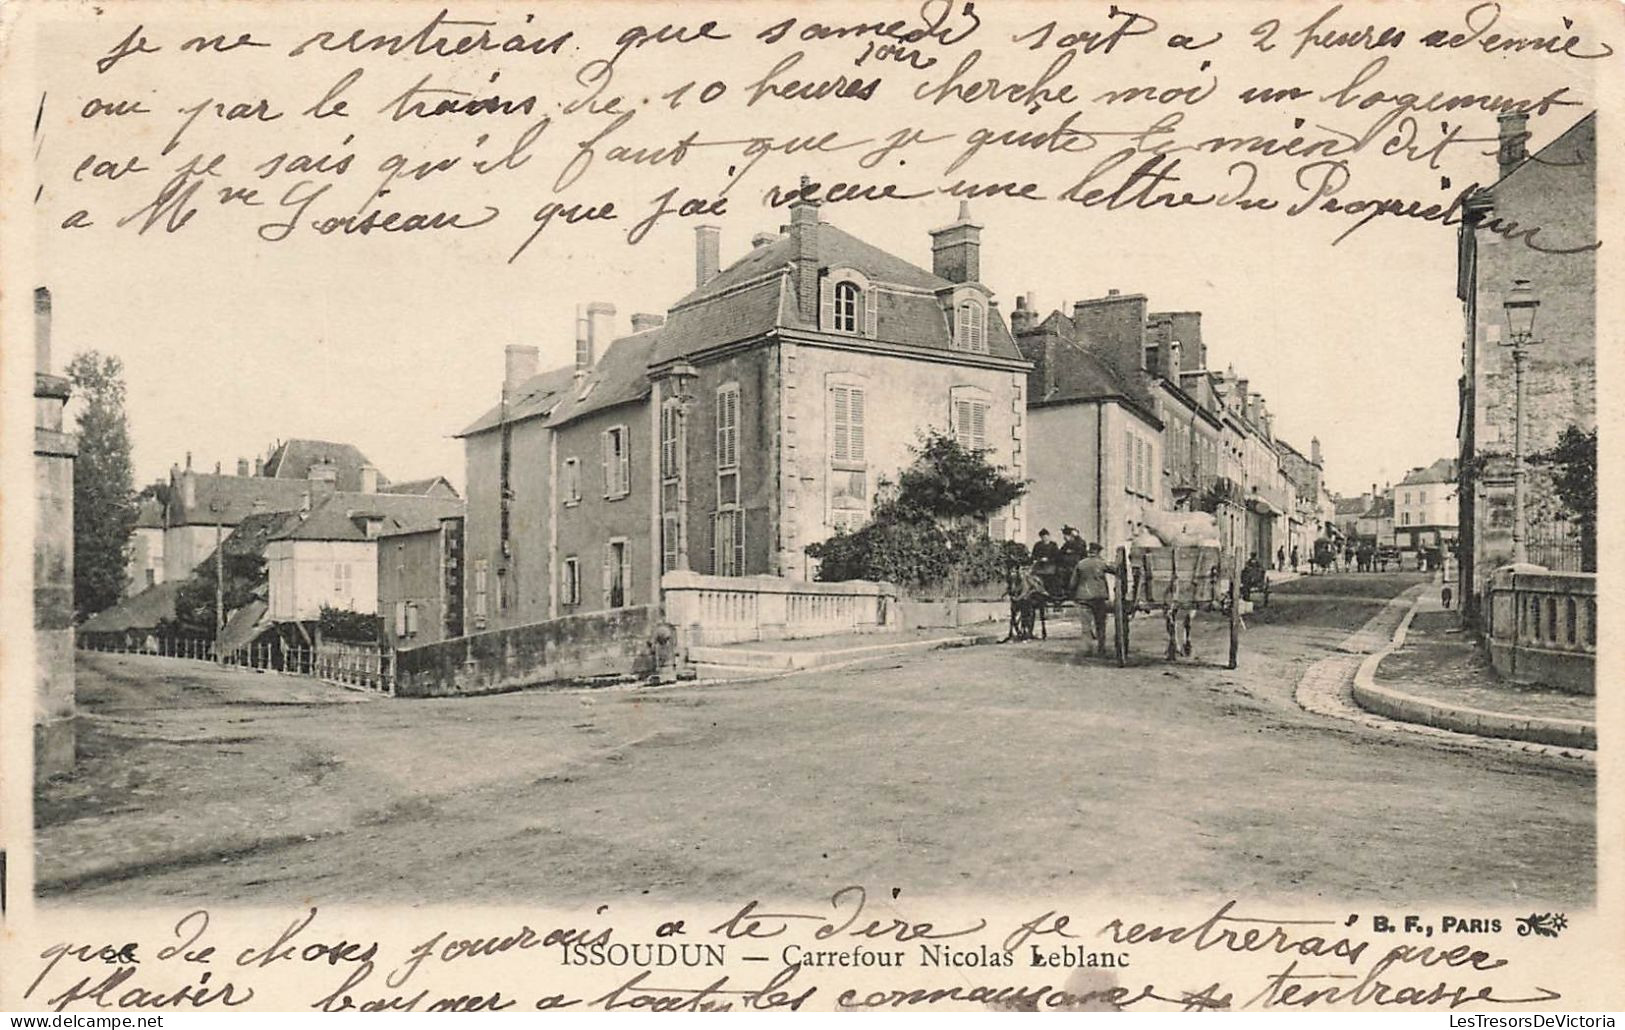 je ne rentrerais que samedi soit a 2 heures ademie
soir
oui par le trains de 10 heures cherche moi un logement
car je sais qu'il faut que je quite le mien dit le
a Mme Loiseau que j'ai recue une lettre du Proprieteur
que de choses jourais a te dire je rentrerais avec
B. F., PARIS
26 ISSOUDUN — Carrefour Nicolas Leblanc
plaisir bonjour a toutes les connaissance je tembrasse
LesTresorsDeVictoria